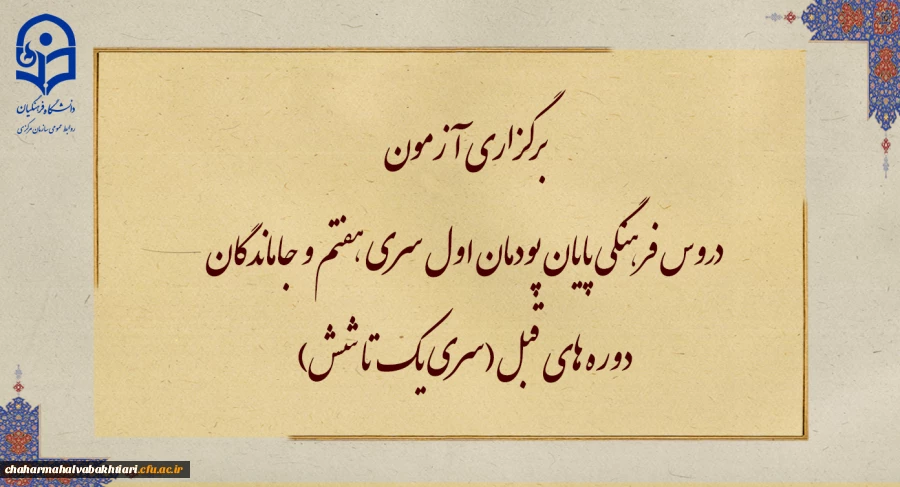 دانشگاه فرهنگیان
روابط عمومی سازمان مرکزی
برگزاری آزمون
دروس فرهنگی پایان پودمان اول سری هفتم و جاماندگان
دوره های قبل (سری یک تا شش)
chaharmahalvabakhtiari.cfu.ac.ir